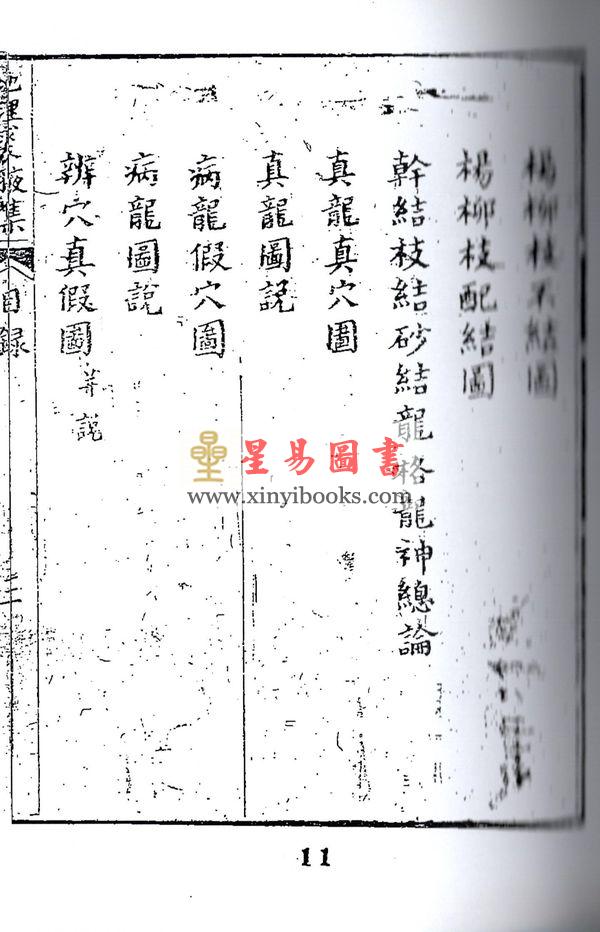 楊柳枝不結圖
楊柳枝配結圖
幹結枝結砂結龍格龍神總論
真龍真穴圖
真龍圖説
病龍假穴圖
病龍圖説
辨穴真假圖 并説
地理 集 目録
二
星易圖書
www.xinyibooks.com
11